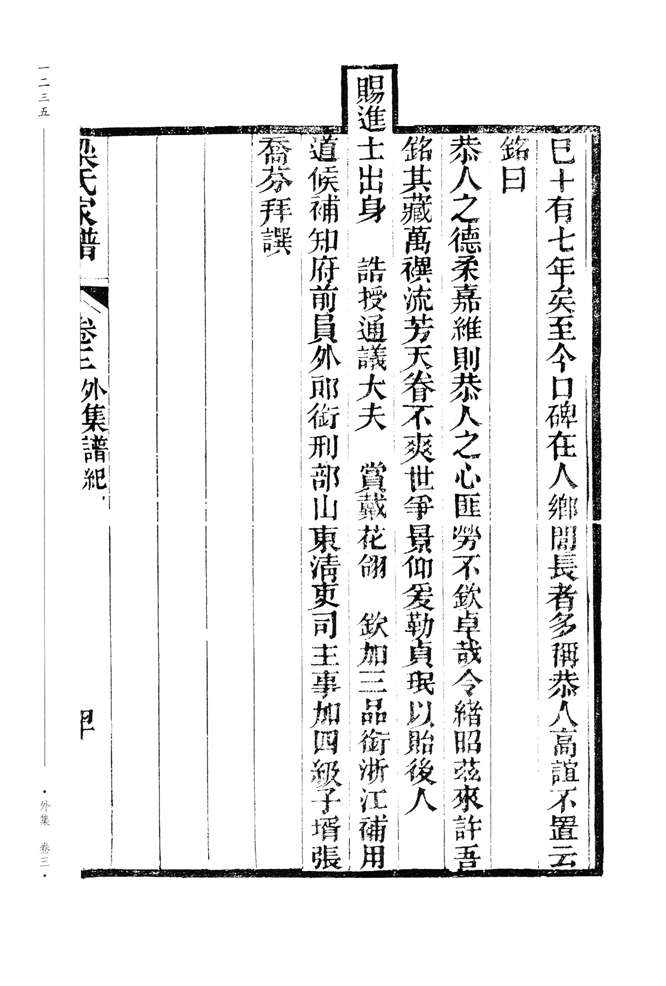 巳十有七年矣至今口碑在人鄉閭長者多稱恭人高誼不置云
銘曰
恭人之德柔嘉維則恭人之心匪勞不欽卓哉令緒昭茲來許吾
銘其藏萬禩流芳天眷不爽世爭景仰爰勒貞珉以貽後人
賜進士出身 誥授通議大夫 賞戴花翎 欽加三品銜浙江補用
道候補知府前員外郎銜刑部山東清吏司主事加四級子壻張
喬芬拜譔
梁氏家譜 卷三外集譜紀
一二三五
·外集 卷三·